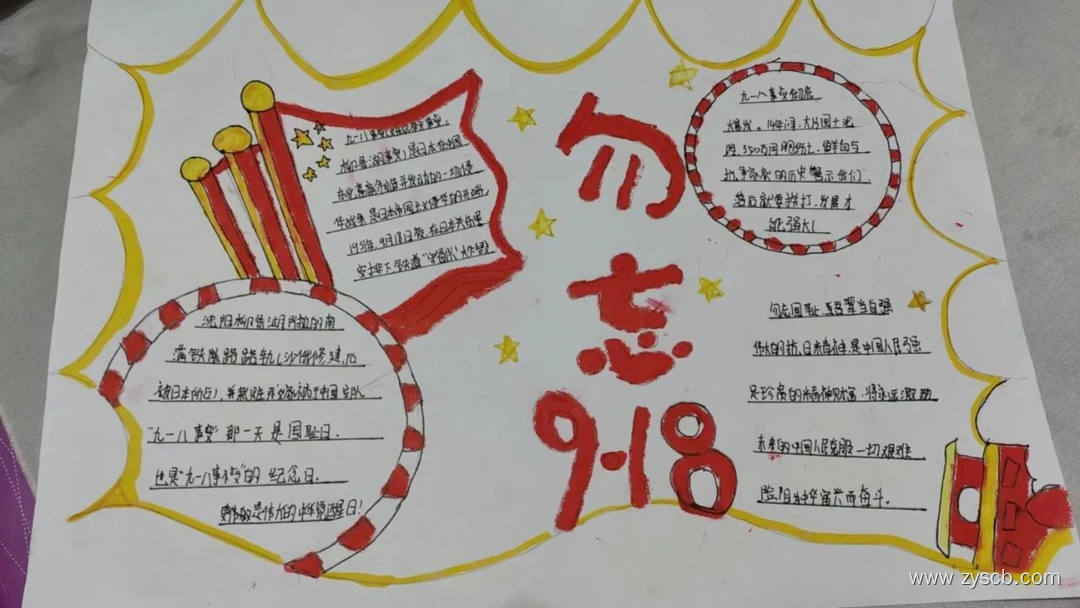 九一八事变(又称奉天事变、
柳条湖事变)是日本在中国
东北蓄意制造并发动的一场侵
华战争,是日本帝国主义侵华的开端
1931年9月18日夜,在日本关东军
安排下,铁道“守备队”炸毁
沈阳柳条湖附近的南
满铁路路轨(沙俄修建,后
被日本所占),并栽赃嫁祸于中国军队
“九一八事变”那一天是国耻日、
也是“九一八事变”的纪念日、
更是伟大的中华觉醒日!
勿
忘
9·18
九一八事变彻底
爆发。14年间,大片国土沦
陷,3500万同胞伤亡,鲜血与
抗争
的历史警示我们
落后就要挨打,发展才
能强大!
勿忘国耻,吾辈当自强
伟大的抗日精神,是中国人民
是珍贵的精神财富,将永远激励
未来的中国人民克服一切艰难
险阻为中华
而奋斗。
www.zyscb.com